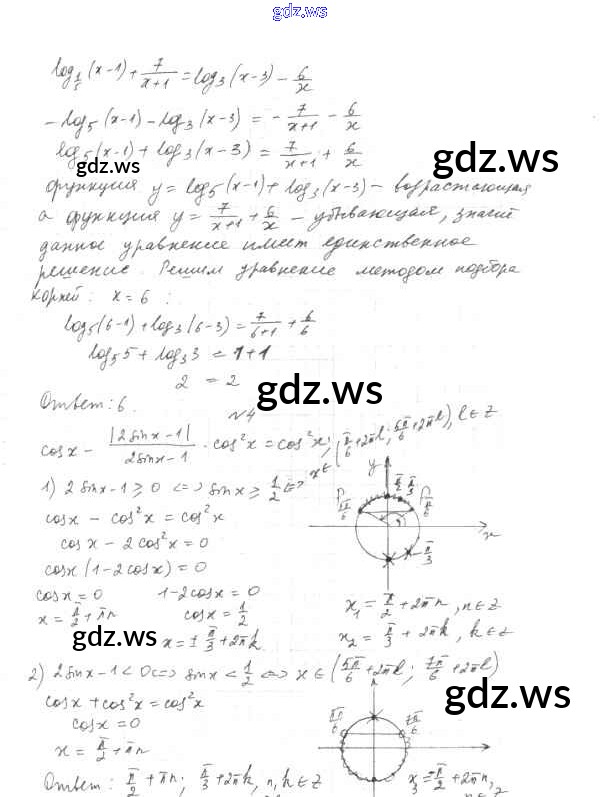 gdz.ws
log_{1/5}(x-1) + 7/(x+1) = log_3(x-3) - 6/x
-log_5(x-1) - log_3(x-3) = -7/(x+1) - 6/x
log_5(x-1) + log_3(x-3) = 7/(x+1) + 6/x
gdz.ws
gdz.ws
функция y = log_5(x-1) + log_3(x-3) - возрастающая
а функция y = 7/(x+1) + 6/x - убывающая, значит
данное уравнение имеет единственное
решение. Решим уравнение методом подбора
корней: x = 6 :
log_5(6-1) + log_3(6-3) = 7/(6+1) + 6/6
log_5 5 + log_3 3 = 1+1
2 = 2
gdz.ws
Ответ: 6.
№4
cosx - |2sinx-1|/(2sinx-1) · cos²x = cos²x;
1) 2sinx-1 ≥ 0 <=> sinx ≥ 1/2 <=> x ∈ [π/6 + 2πl; 5π/6 + 2πl), l ∈ Z
cosx - cos²x = cos²x
cosx - 2cos²x = 0
cosx(1-2cosx) = 0
cosx = 0 1-2cosx = 0
x = π/2 + πn cosx = 1/2
gdz.ws
x = ± π/3 + 2πk
y
π/2
π/3
5π/6
π/6
x
-π/3
x_1 = π/2 + 2πn, n ∈ Z
x_2 = π/3 + 2πk, k ∈ Z
2) 2sinx-1 < 0 <=> sinx < 1/2 <=> x ∈ (5π/6 + 2πl; 7π/6 + 2πl)
cosx + cos²x = cos²x
cosx = 0
x = π/2 + πn
gdz.ws
x_3 = π/2 + 2πn,
Ответ: π/2 + πn; π/3 + 2πk, n, k ∈ Z
gdz.ws